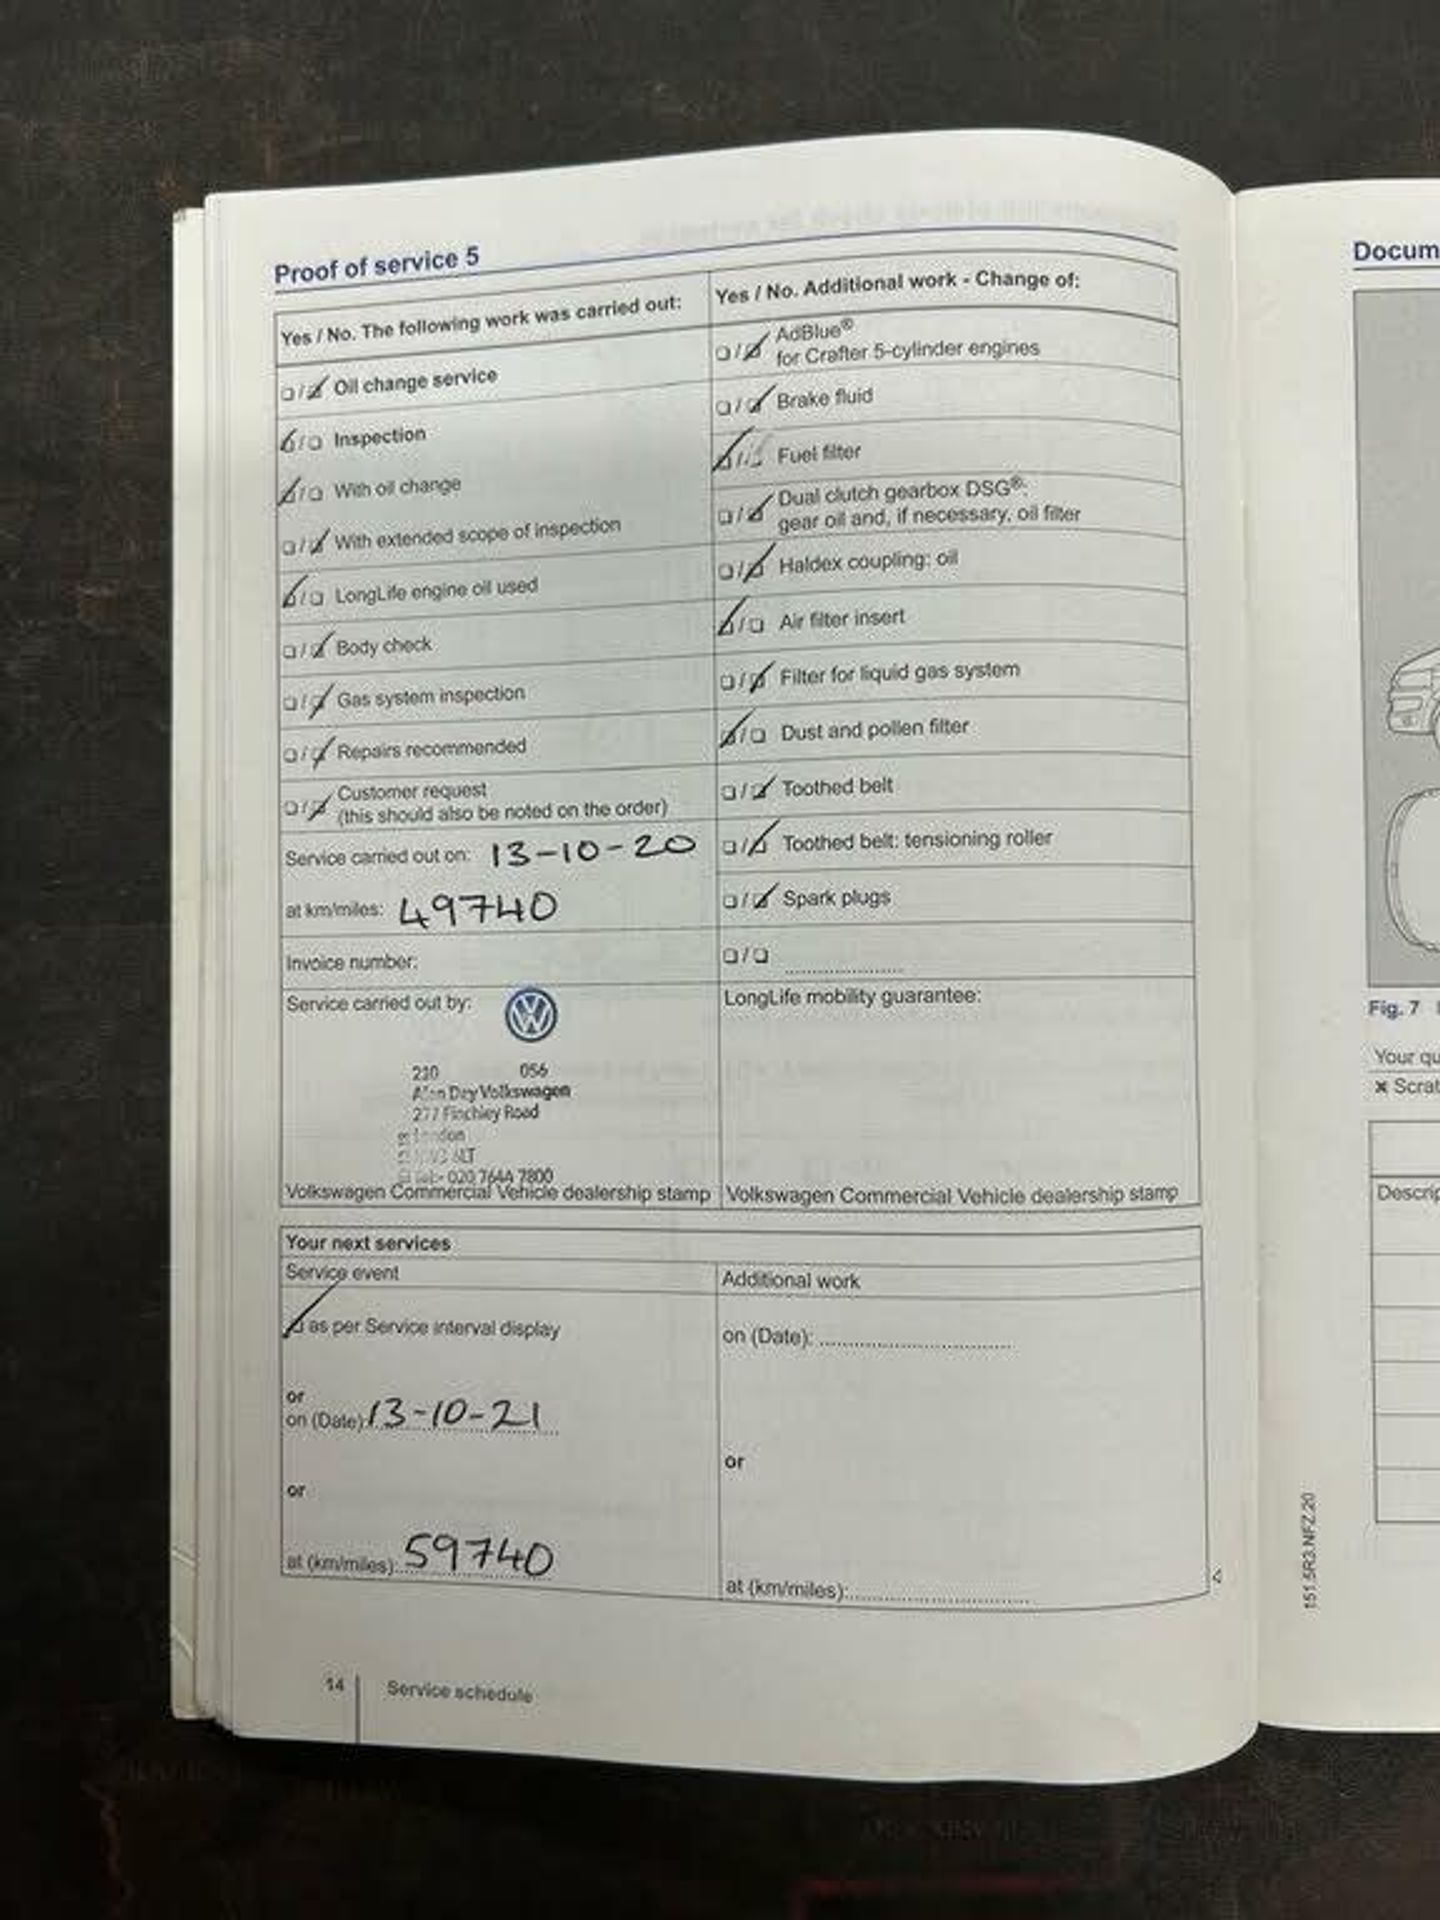 Proof of service 5
Yes / No. The following work was carried out:
☐/☑ Oil change service
☑/☐ Inspection
☑/☐ With oil change
☐/☑ With extended scope of inspection
☑/☐ LongLife engine oil used
☐/☑ Body check
☐/☑ Gas system inspection
☐/☑ Repairs recommended
☐/☑ Customer request
(this should also be noted on the order)
Service carried out on: 13-10-20
at km/miles: 49740
Invoice number:
Service carried out by:
210 056
Alan Day Volkswagen
277 Finchley Road
London
NW3 6LT
Tel: 020 7644 7800
Volkswagen Commercial Vehicle dealership stamp
Yes / No. Additional work - Change of:
☐/☑ AdBlue®
for Crafter 5-cylinder engines
☐/☑ Brake fluid
☑/☐ Fuel filter
☐/☑ Dual clutch gearbox DSG®:
gear oil and, if necessary, oil filter
☐/☑ Haldex coupling: oil
☑/☐ Air filter insert
☐/☑ Filter for liquid gas system
☑/☐ Dust and pollen filter
☐/☑ Toothed belt
☐/☑ Toothed belt: tensioning roller
☐/☑ Spark plugs
☐/☐ ....................
LongLife mobility guarantee:
Volkswagen Commercial Vehicle dealership stamp
Your next services
Service event
☑ as per Service interval display
or
on (Date): 13-10-21
or
at (km/miles): 59740
Additional work
on (Date): ....................
or
at (km/miles): ....................
14 Service schedule
151.5R3.NFZ.20
Docum
Fig. 7
Your qu
× Scrat
Descrip